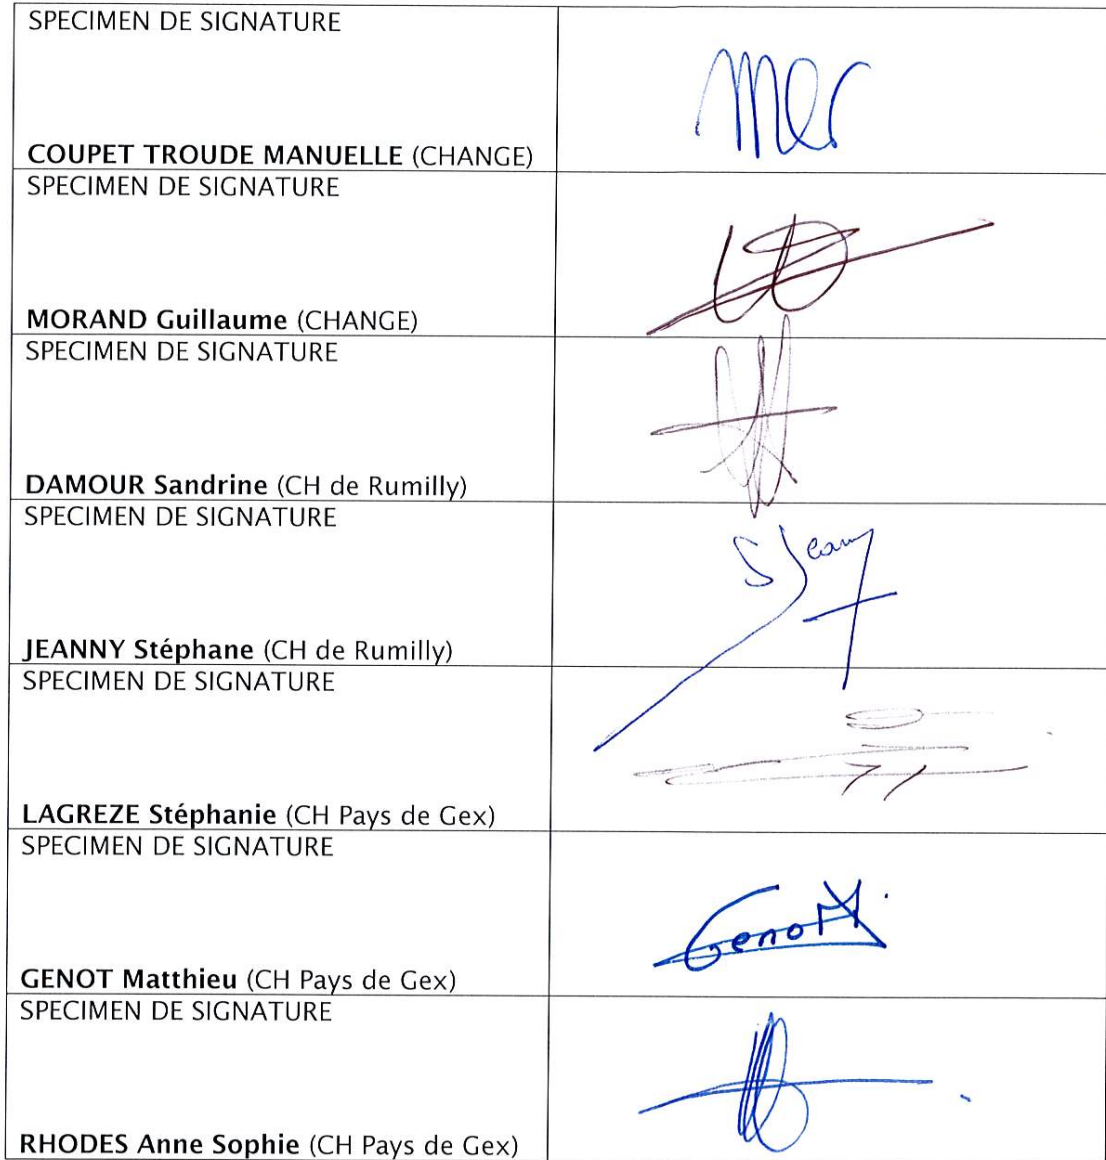 SPECIMEN DE SIGNATURE
COUPET TROUDE MANUELLE (CHANGE)
SPECIMEN DE SIGNATURE
MORAND Guillaume (CHANGE)
SPECIMEN DE SIGNATURE
DAMOUR Sandrine (CH de Rumilly)
SPECIMEN DE SIGNATURE
S Jeanny
JEANNY Stéphane (CH de Rumilly)
SPECIMEN DE SIGNATURE
LAGREZE Stéphanie (CH Pays de Gex)
SPECIMEN DE SIGNATURE
Genot M.
GENOT Matthieu (CH Pays de Gex)
SPECIMEN DE SIGNATURE
RHODES Anne Sophie (CH Pays de Gex)